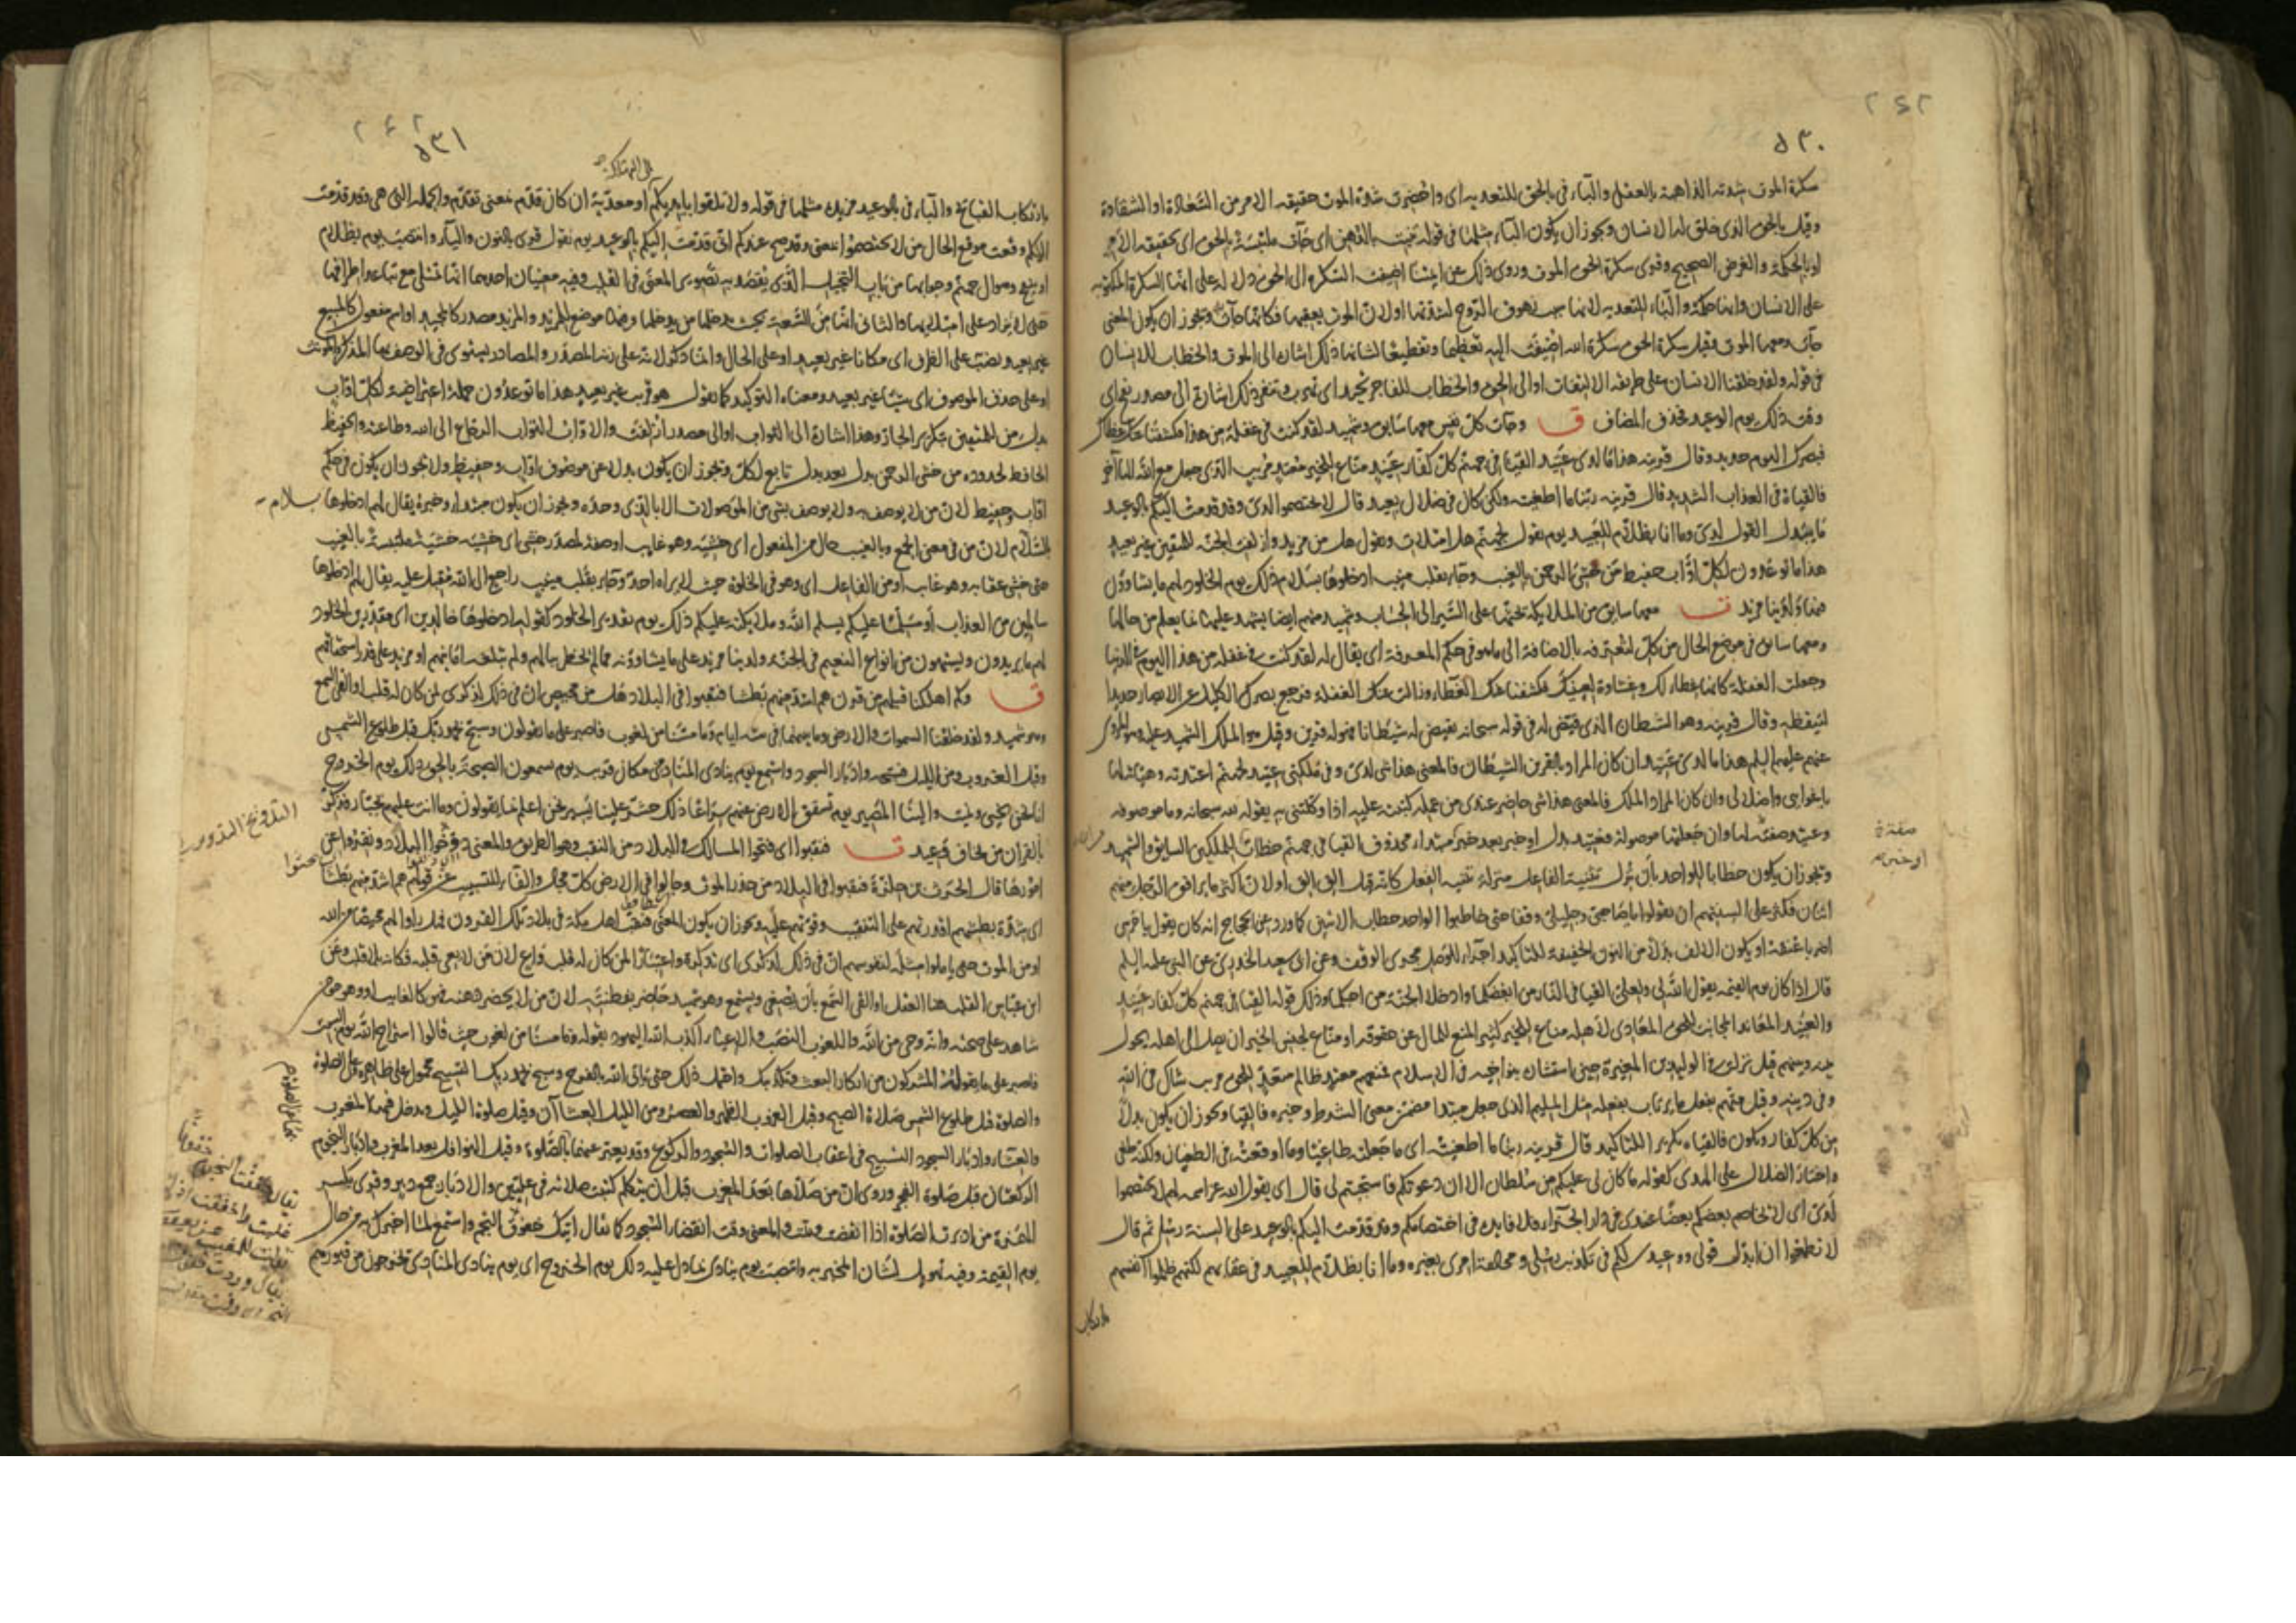 ٥٣٠
سكرة الموت شدته الذاهبة بالعقل والباء في بالحق للتعدية اى واحضرت شدة الموت حقيقة الامر من السعادة او الشقاوة
وقيل بالحق الذى خلق له الانسان ويجوز ان يكون الباء مثلها في قوله تنبت بالدهن اى جاءت ملتبسة بالحق اى بحقيقة الامر
او بالحكمة والغرض الصحيح وقرى سكرة الحق بالموت وروى ذلك عن ايمتنا اضيفت السكرة الى الحق دلالة على انها السكرة المكتوبة
على الانسان وانها حكمة والباء للتعدية لانها سبب زهوق الروح لشدتها او لان الموت يعقبها فكانها جاءت به ويجوز ان يكون المعنى
جاءت ومعها الموت وقيل سكرة الحق سكرة الله اضيفت اليه تعظيما وتفظيعا لشانها ذلك اشارة الى الموت والخطاب للانسان
في قوله ولقد خلقنا الانسان على طريقة الالتفات او الى الحق والخطاب للفاجر تحيد اى تهرب وتنفر ذلك اشارة الى مصدر نفخ اى
وقت ذلك يوم الوعيد فحذف المضاف ق وجات كل نفس معها سايق وشهيد لقد كنت في غفلة من هذا فكشفنا عنك غطاك
فبصرك اليوم حديد وقال قرينه هذا ما لدى عتيد القيا في جهنم كل كفار عنيد مناع للخير معتد مريب الذى جعل مع الله الها آخر
فالقياه في العذاب الشديد قال قرينه ربنا ما اطغيته ولكن كان في ضلال بعيد قال لا تختصموا لدى وقد قدمت اليكم بالوعيد
ما يبدل القول لدى وما انا بظلام للعبيد يوم نقول لجهنم هل امتلات وتقول هل من مزيد وازلفت الجنة للمتقين غير بعيد
هذا ما توعدون لكل اواب حفيظ من خشى الرحمن بالغيب وجاء بقلب منيب ادخلوها بسلام ذلك يوم الخلود لهم ما يشاؤن
فيها ولدينا مزيد ت معها سايق من الملايكة يحثها على السير الى الحساب وشهيد منهم ايضا يشهد عليها بما يعلم من حالها
ومعها سايق في موضع الحال من كل لتعرفه بالاضافة الى ما هو في حكم المعرفة اى يقال له لقد كنت في غفلة من هذا اليوم في الدنيا
وجعلت الغفلة كانها غطاء لك وغشاوة لعينيك فكشفنا عنك الغطاء وزالت عنك الغفلة فرجع بصرك الكليل عن الابصار حديدا
لتيقظه وقال قرينه وهو الشيطان الذى قيض له في قوله سبحانه نقيض له شيطانا فهو له قرين وقيل هو الملك الشهيد عليه وهو المروى
عنهم عليهم السلم هذا ما لدى عتيد ان كان المراد بالقرين الشيطان فالمعنى هذا شى لدى وفي ملكتى عتيد لجهنم اعتدته وهياته لها
باغوايى واضلالى وان كان المراد الملك فالمعنى هذا شى حاضر عندى من عمله كتبته عليه اذ وكلتنى به بقوله سبحانه وما موصوفة
وعتيد صفة لها وان جعلتها موصولة فعتيد بدل او خبر بعد خبر او خبر مبتداء محذوف القيا في جهنم خطاب للملكين السايق والشهيد
ويجوز ان يكون خطابا للواحد بان نزل تثنية الفاعل منزلة تثنية الفعل كانه قيل الق الق او لان اكثر ما يرافق الرجل منهم
اثنان فكثر على السنتهم ان يقولوا يا صاحبى وخليلى وقفا حتى خاطبوا الواحد خطاب الاثنين كما ورد عن الحجاج انه كان يقول يا حرسى
اضربا عنقه او يكون الالف بدلا من النون الخفيفة للتاكيد اجراء للوصل مجرى الوقف وعن ابى سعيد الخدرى عن النبى عليه السلم
قال اذا كان يوم القيمة يقول الله لى ولعلى القيا في النار من ابغضكما وادخلا الجنة من احبكما وذلك قوله القيا في جهنم كل كفار عنيد
والعنيد المعاند المجانب للحق المعادى لاهله مناع للخير كثير المنع للمال عن حقوقه او مناع لجنس الخير ان يصل الى اهله يحول
بينه وبينهم قيل نزلت في الوليد بن المغيرة حين استشاره بنو اخيه في الاسلام فمنعهم معتد ظالم متعد للحق مريب شاك في الله
وفي دينه وقيل متهم يفعل ما يرتاب بفعله مثل المليم الذى جعل مبتدا مضمن معنى الشرط وخبره فالقياه ويجوز ان يكون بدلا
من كل كفار ويكون فالقياه تكرير للتاكيد قال قرينه ربنا ما اطغيته اى ما جعلته طاغيا وما اوقعته في الطغيان ولكنه طغى
واختار الضلال على الهدى كقوله ما كان لى عليكم من سلطان الا ان دعوتكم فاستجبتم لى قال اى يقول الله عز اسمه لهم لا تختصموا
لدى اى لا يخاصم بعضكم بعضا عندى في دار الجزاء ولا فايدة في اختصامكم وقد قدمت اليكم بالوعيد على السنة رسلى ثم قال
لا تطمعوا ان ابدل قولى ووعيدى لكم في تكذيب رسلى ومخالفة امرى بغيره وما انا بظلام للعبيد في عقابهم لكنهم ظلموا انفسهم
بارتكاب
صفة
او خبر
٥٣١
الى التهلكة
بارتكاب القبايح والباء في بالوعيد مزيدة مثلها في قوله ولا تلقوا بايديكم او معدية ان كان قدم بمعنى تقدم والجملة التى هى وقد قدمت
اليكم وقعت موقع الحال من لا تختصموا والمعنى وقد صح عندكم انى قدمت اليكم بالوعيد يوم نقول قرى بالنون والياء وانتصب يوم بظلام
او بنفخ وسوال جهنم وجوابها من باب التخييل الذى يقصد به تصوير المعنى في القلب وفيه معنيان احدهما انها تمتلى مع تباعد اطرافها
حتى لا يزاد على امتلايها والثانى انها من السعة بحيث يدخلها من يدخلها وفيها موضع للمزيد والمزيد مصدر كالمجيد او اسم مفعول كالمبيع
غير بعيد نصب على الظرف اى مكانا غير بعيد او على الحال وانما ذكر لانه على زنة المصدر والمصادر يستوى في الوصف بها المذكر والمونث
او على حذف الموصوف اى شيئا غير بعيد ومعناه التوكيد كما تقول هو قريب غير بعيد هذا ما توعدون جملة اعتراضية لكل اواب
بدل من المتقين بتكرير الجار وهذا اشارة الى الثواب او الى مصدر ازلفت والاواب التواب الرجاع الى الله وطاعته والحفيظ
الحافظ لحدوده من خشى الرحمن بدل بعد بدل تابع لكل ويجوز ان يكون بدلا عن موصوف اواب وحفيظ ولا يجوز ان يكون في حكم
اواب وحفيظ لان من لا يوصف به ولا يوصف بشى من الموصولات الا بالذى وحده ويجوز ان يكون مبتداء وخبره يقال لهم ادخلوها بسلام
لان من في معنى الجمع وبالغيب حال من المفعول اى خشيه وهو غايب او صفة لمصدر خشى اى خشيه خشية ملتبسة بالغيب
حتى خشى عقابه وهو غايب او من الفاعل اى وهو في الخلوة حيث لا يراه احد وجاء بقلب منيب راجع الى الله مقبل عليه يقال لهم ادخلوها
سالمين من العذاب او مسلما عليكم يسلم الله وملايكته عليكم ذلك يوم تقدير الخلود كقوله ادخلوها خالدين اى مقدرين الخلود
لهم ما يريدون ويشتهون من انواع النعيم في الجنة ولدينا مزيد على ما يشاؤنه مما لم يخطر ببالهم ولم تبلغه امانيهم او مزيد على قدر استحقاقهم
ق وكم اهلكنا قبلهم من قرن هم اشد منهم بطشا فنقبوا في البلاد هل من محيص ان في ذلك لذكرى لمن كان له قلب او القى السمع
وهو شهيد ولقد خلقنا السموات والارض وما بينهما في ستة ايام وما مسنا من لغوب فاصبر على ما يقولون وسبح بحمد ربك قبل طلوع الشمس
وقبل الغروب ومن الليل فسبحه وادبار السجود واستمع يوم يناد المناد من مكان قريب يوم يسمعون الصيحة بالحق ذلك يوم الخروج
انا نحن نحيى ونميت والينا المصير يوم تشقق الارض عنهم سراعا ذلك حشر علينا يسير نحن اعلم بما يقولون وما انت عليهم بجبار فذكر
بالقران من يخاف وعيد ت فنقبوا اى فتحوا المسالك في البلاد من النقب وهو الطريق والمعنى دوخوا البلاد ونقروا عن
امورها قال الحرث بن حلزة فنقبوا في البلاد من حذر الموت وجالوا في الارض كل مجال والفاء للتسبيب عن قوله هم اشد منهم بطشا
اى شدة بطشهم اقدرتهم على التنقيب وقوتهم عليه ويجوز ان يكون المعنى فنقب اهل مكة في بلاد تلك القرون فهل راوا لهم محيصا من الله
او من الموت حتى ياملوا مثله لنفوسهم ان في ذلك لذكرى اى تذكرة واعتبارا لمن كان له قلب واع لان من لا يعى قلبه فكانه لا قلب له وعن
ابن عباس القلب هنا العقل او القى السمع بان يصغى ويستمع وهو شهيد حاضر بفطنته لان من لا يحضر ذهنه فهو كالغايب او وهو مومن
شاهد على صحته وانه وحى من الله واللغوب التعب والاعياء اكذب الله اليهود بقوله وما مسنا من لغوب حيث قالوا استراح الله يوم السبت
فاصبر على ما يقوله المشركون من انكار البعث وتكذيبك واحتمل ذلك حتى ياتى الله بالفرج وسبح بحمد ربك التسبيح محمول على ظاهره وعلى الصلوة
والصلوة قبل طلوع الشمس صلاة الصبح وقبل الغروب الظهر والعصر ومن الليل العشاآن وقيل صلوة الليل ويدخل فيها المغرب
والعشاء وادبار السجود التسبيح في اعقاب الصلوات والسجود والركوع وقد يعبر عنهما بالصلوة وقيل النوافل بعد المغرب وادبار النجوم
الركعتان قبل صلوة الفجر وروى ان من صلاها بعد المغرب قبل ان يتكلم كتبت صلاته في عليين والادبار جمع دبر وقرى بكسر
الهمزة من ادبرت الصلوة اذا انقضت وتمت والمعنى وقت انقضاء السجود كما يقال اتيك خفوق النجم واستمع لما اخبرك به من حال
يوم القيمة وفيه تهويل لشان المخبر به وانتصب يوم ينادى بما دل عليه ذلك يوم الخروج اى يوم ينادى المنادى يخرجون من قبورهم